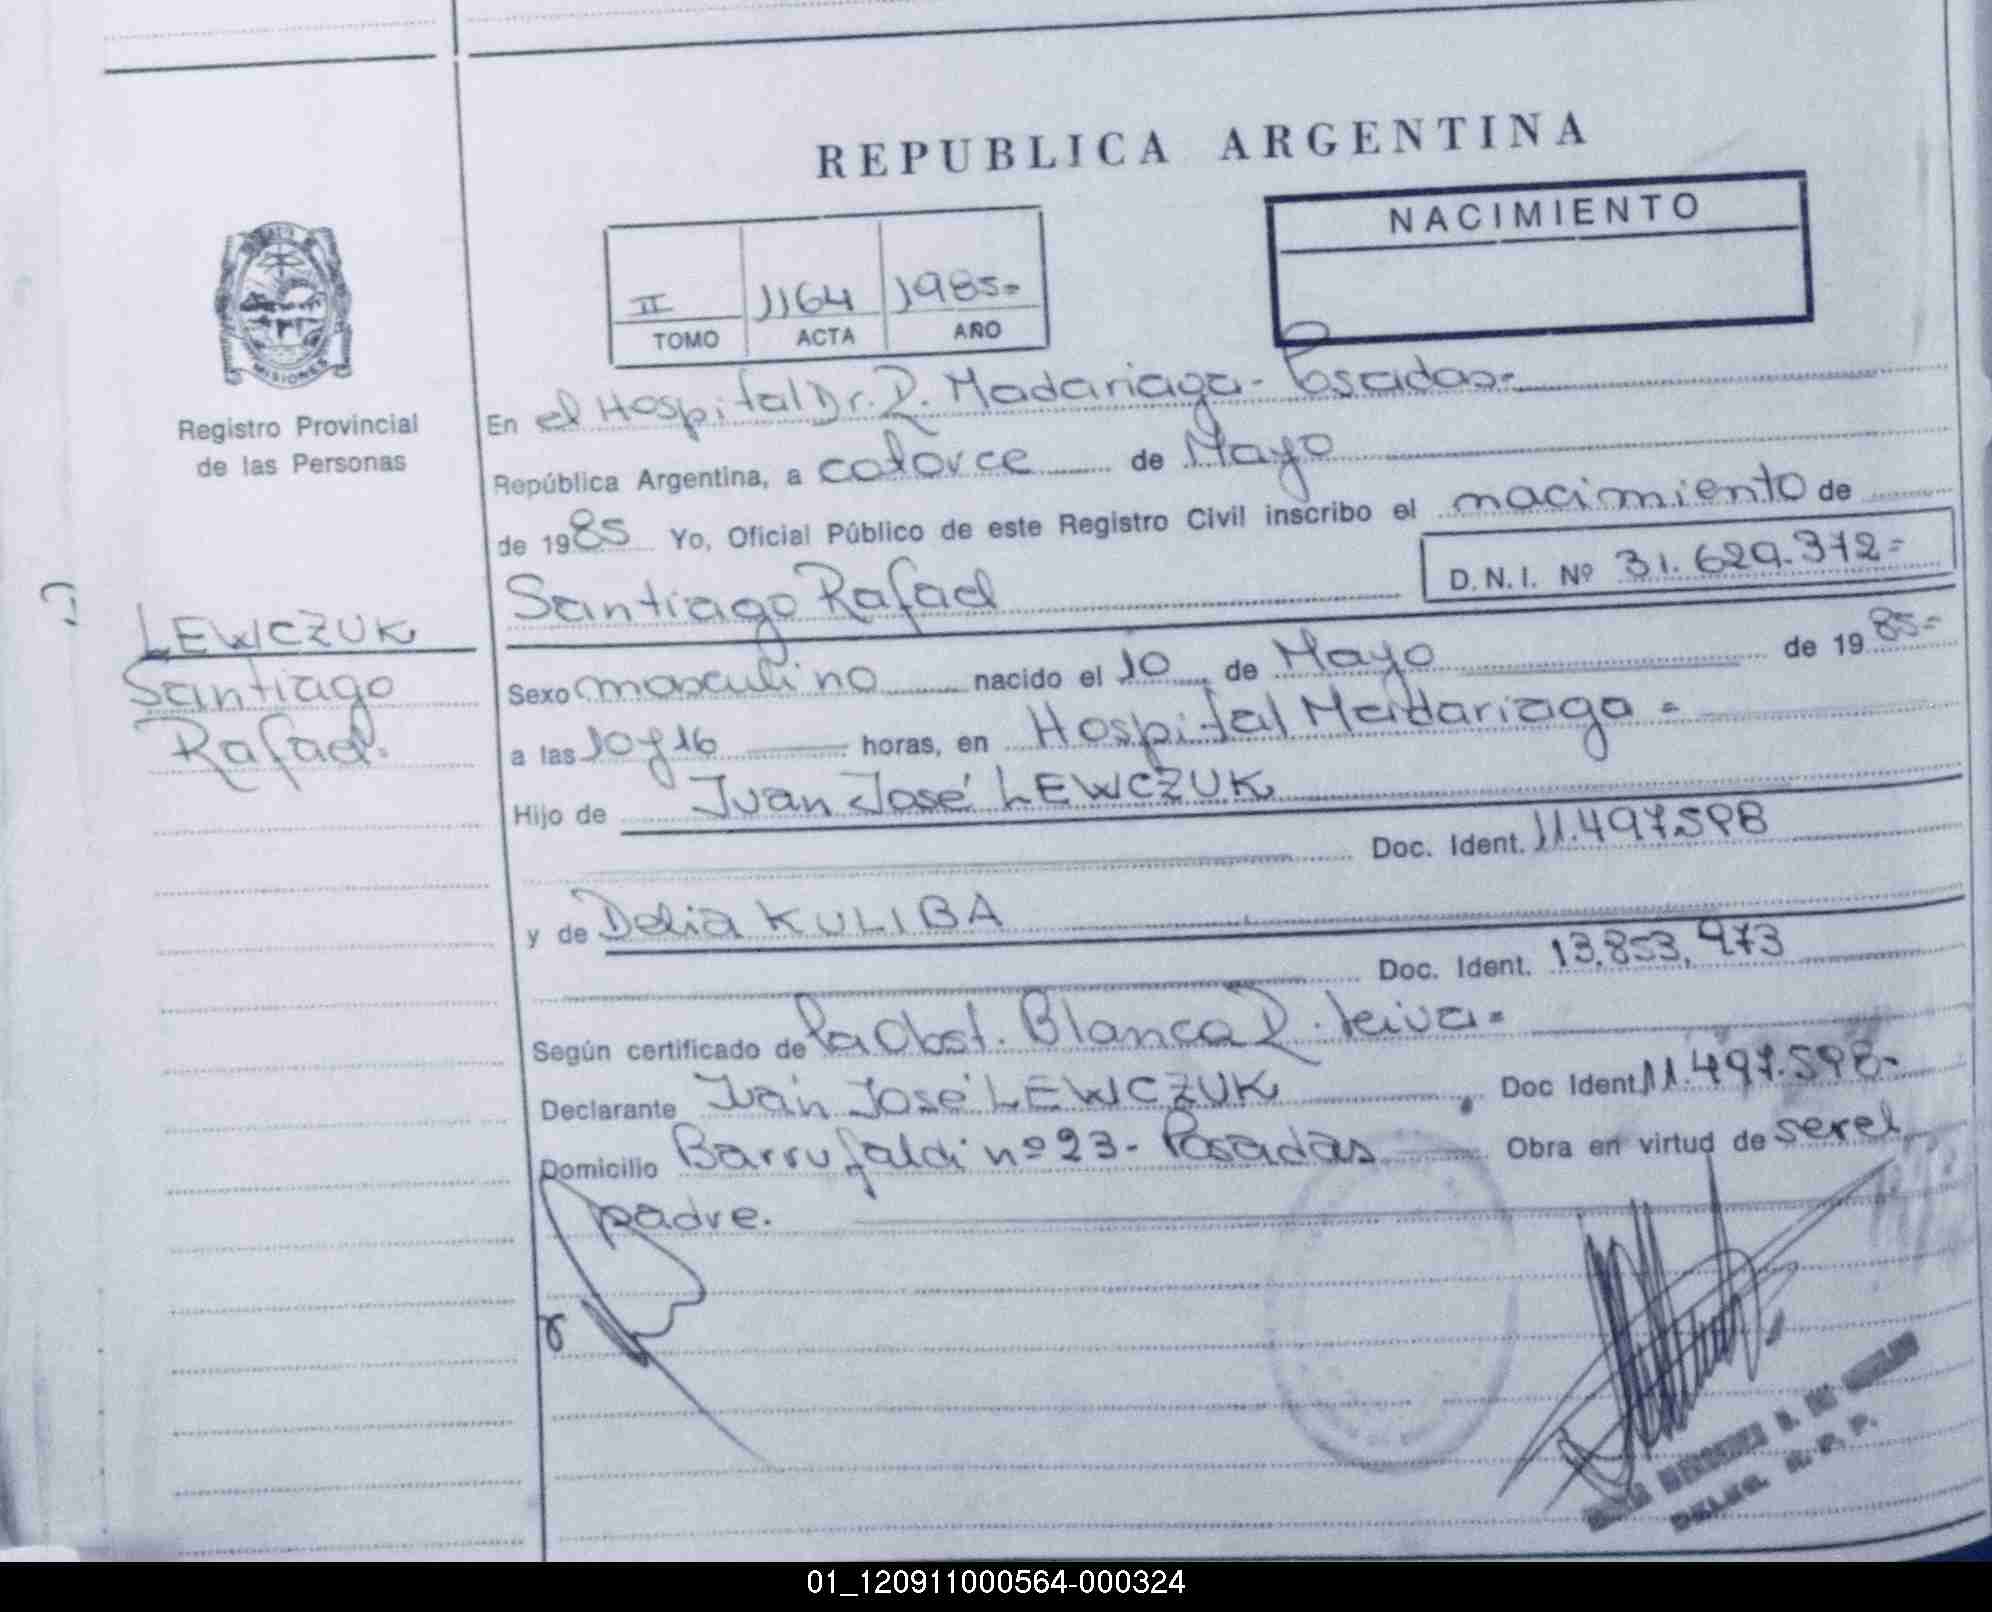 REPUBLICA ARGENTINA
NACIMIENTO
II 1164 1985=
TOMO ACTA AÑO
MISIONES
Registro Provincial
de las Personas
En el Hospital Dr. R. Madariaga - Posadas=
República Argentina, a catorce de Mayo
de 1985 Yo, Oficial Público de este Registro Civil inscribo el nacimiento de
Santiago Rafael D.N.I. Nº 31.629.372=
LEWCZUK
Santiago
Rafael.
Sexo masculino nacido el 10 de Mayo de 1985=
a las 10 y 16 horas, en Hospital Madariaga =
Hijo de Juan José LEWCZUK
Doc. Ident. 11.497.598
y de Delia KULIBA
Doc. Ident. 13.853.973
Según certificado de la Obst. Blanca R. Leiva=
Declarante Juan José LEWCZUK Doc Ident. 11.497.598-
Domicilio Barrufaldi nº 23 - Posadas Obra en virtud de ser el
padre.
DELEG. R. P. P.
01_120911000564-000324